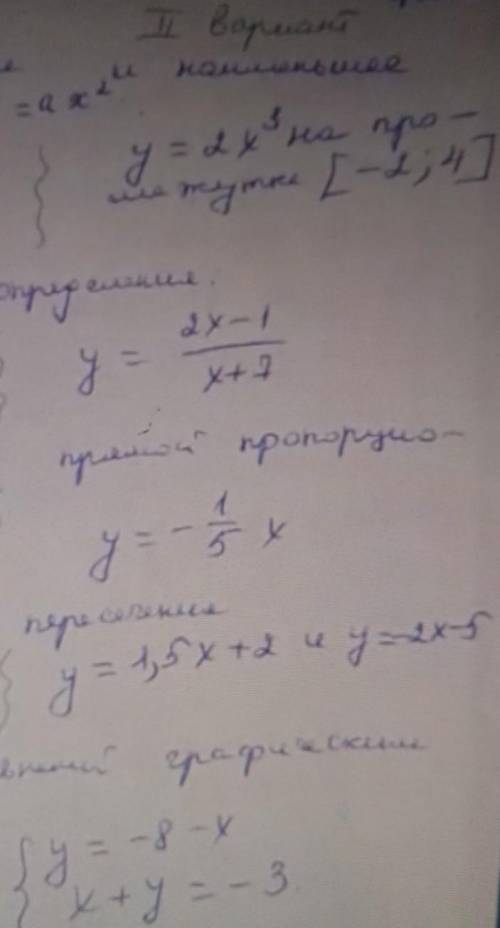 II вариант
и наименьшее
= ax²
y = 2x³ на про-
межутке [-2; 4]
определения.
y = \frac{2x-1}{x+7}
прямой пропорцио-
y = -\frac{1}{5} x
пересечения
y = 1,5x + 2 и y = -2x-5
графическим
{ y = -8 - x
x + y = -3